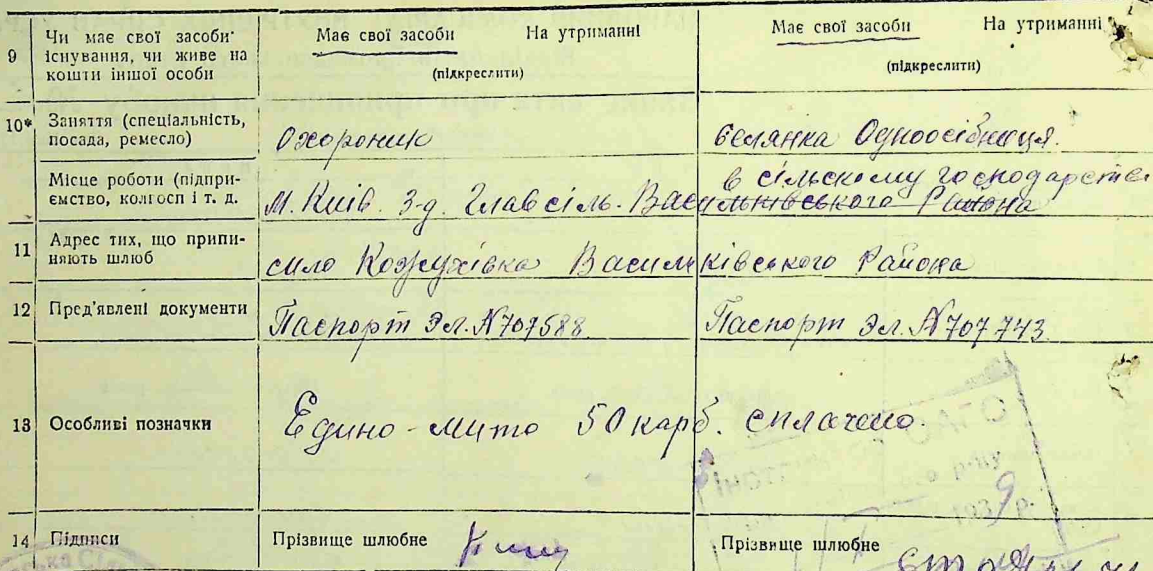 9 Чи має свої засоби існування, чи живе на кошти іншої особи
Має свої засоби На утриманні
(підкреслити)
Має свої засоби На утриманні
(підкреслити)
10* Заняття (спеціальність, посада, ремесло)
Охороник
селянка Одноосібниця.
Місце роботи (підприємство, колгосп і т. д.
М. Київ. З-д. Главсіль. Васильківського Района
в сільскому господарстві
11 Адрес тих, що припиняють шлюб
село Кожухівка Васильківського Района
12 Пред'явлені документи
Паспорт Эл. № 707588
Паспорт Эл. № 707743
13 Особливі позначки
Едино-мито 50 карб. сплачено.
1939 р.
14 Підписи
Прізвище шлюбне
Прізвище шлюбне